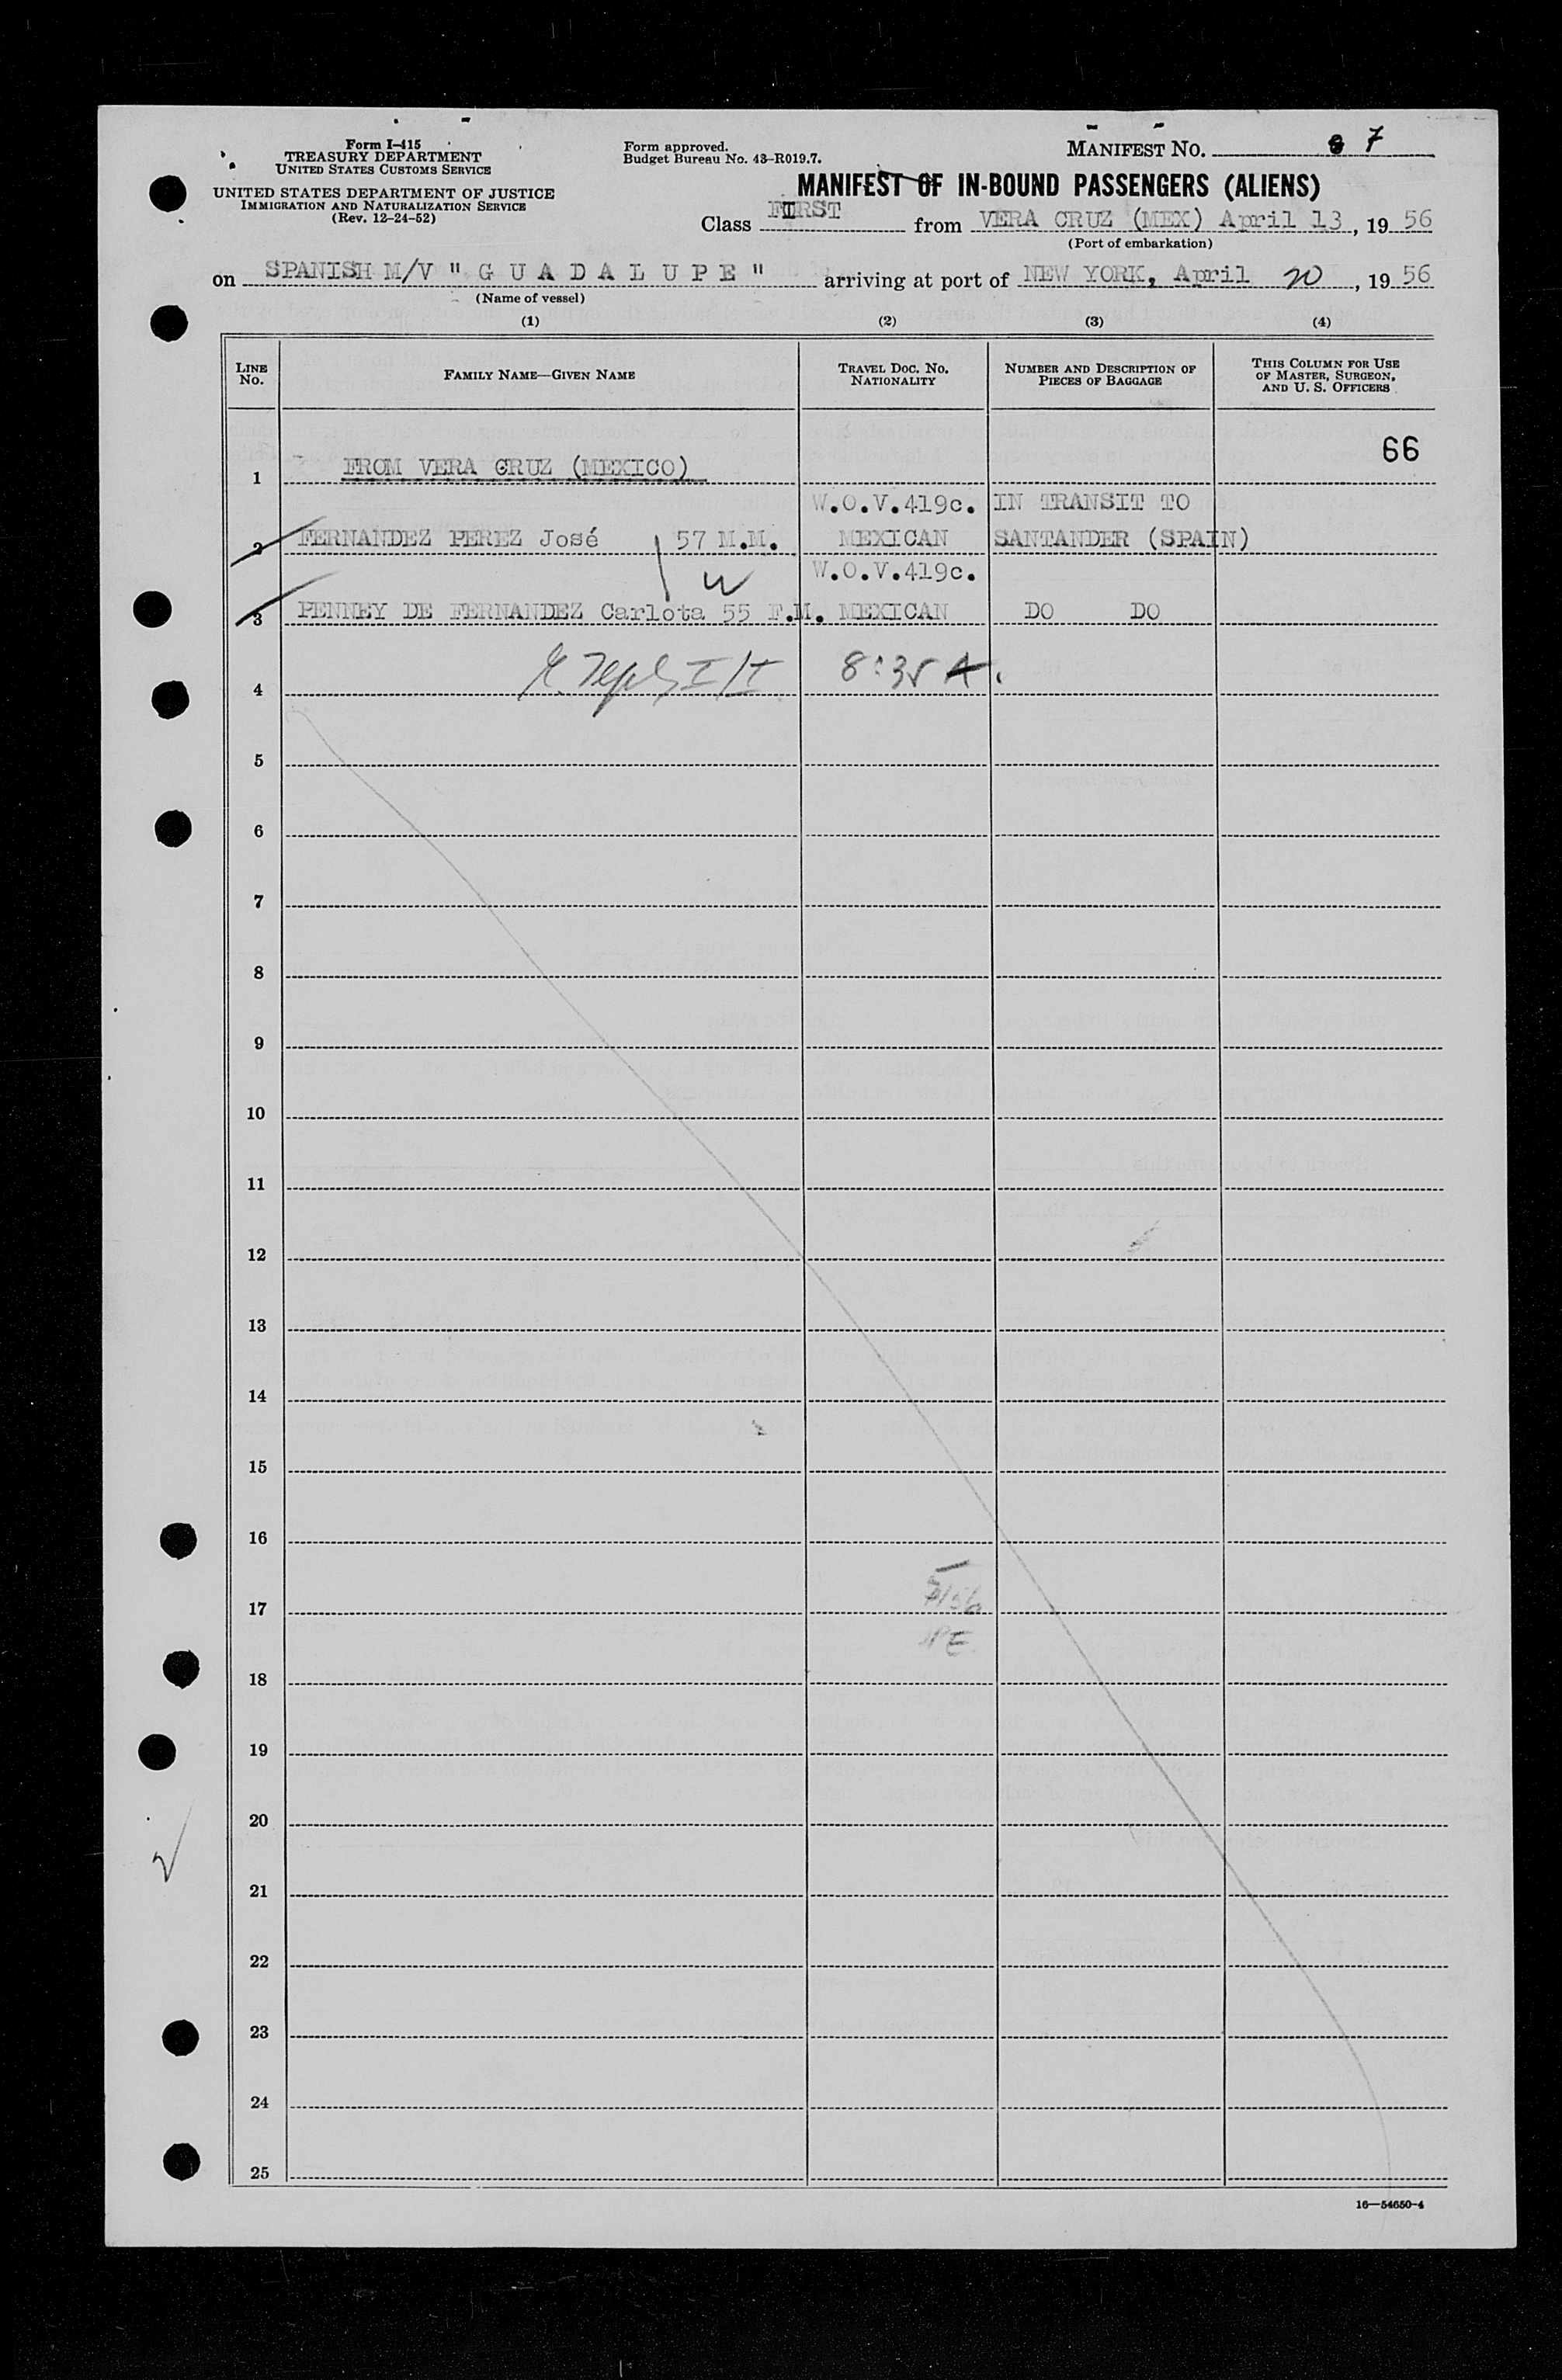 Form I-415
TREASURY DEPARTMENT
UNITED STATES CUSTOMS SERVICE
UNITED STATES DEPARTMENT OF JUSTICE
IMMIGRATION AND NATURALIZATION SERVICE
(Rev. 12-24-52)
Form approved.
Budget Bureau No. 43-R019.7.
MANIFEST NO. 7
MANIFEST OF IN-BOUND PASSENGERS (ALIENS)
Class FIRST from VERA CRUZ (MEX) April 13, 19 56
(Port of embarkation)
on SPANISH M/V " G U A D A L U P E " arriving at port of NEW YORK, April 20, 19 56
(Name of vessel)
(1) (2) (3) (4)
LINE NO. FAMILY NAME—GIVEN NAME TRAVEL DOC. NO. NATIONALITY NUMBER AND DESCRIPTION OF PIECES OF BAGGAGE THIS COLUMN FOR USE OF MASTER, SURGEON, AND U. S. OFFICERS
66
1 FROM VERA CRUZ (MEXICO)
W.O.V.419c. IN TRANSIT TO
2 FERNANDEZ PEREZ José 57 M.M. MEXICAN SANTANDER (SPAIN)
W.O.V.419c.
3 PENNEY DE FERNANDEZ Carlota 55 F.M. MEXICAN DO DO
4 8:35 A.
5
6
7
8
9
10
11
12
13
14
15
16
17
18
19
20
21
22
23
24
25
16—54650-4